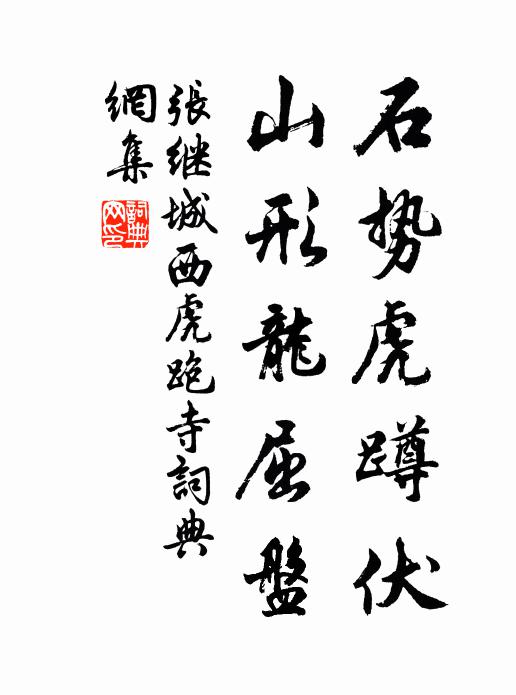 石势虎蹲伏
山形龍屈盤
張继城西虎跑寺詞典
網集
詞典
网印